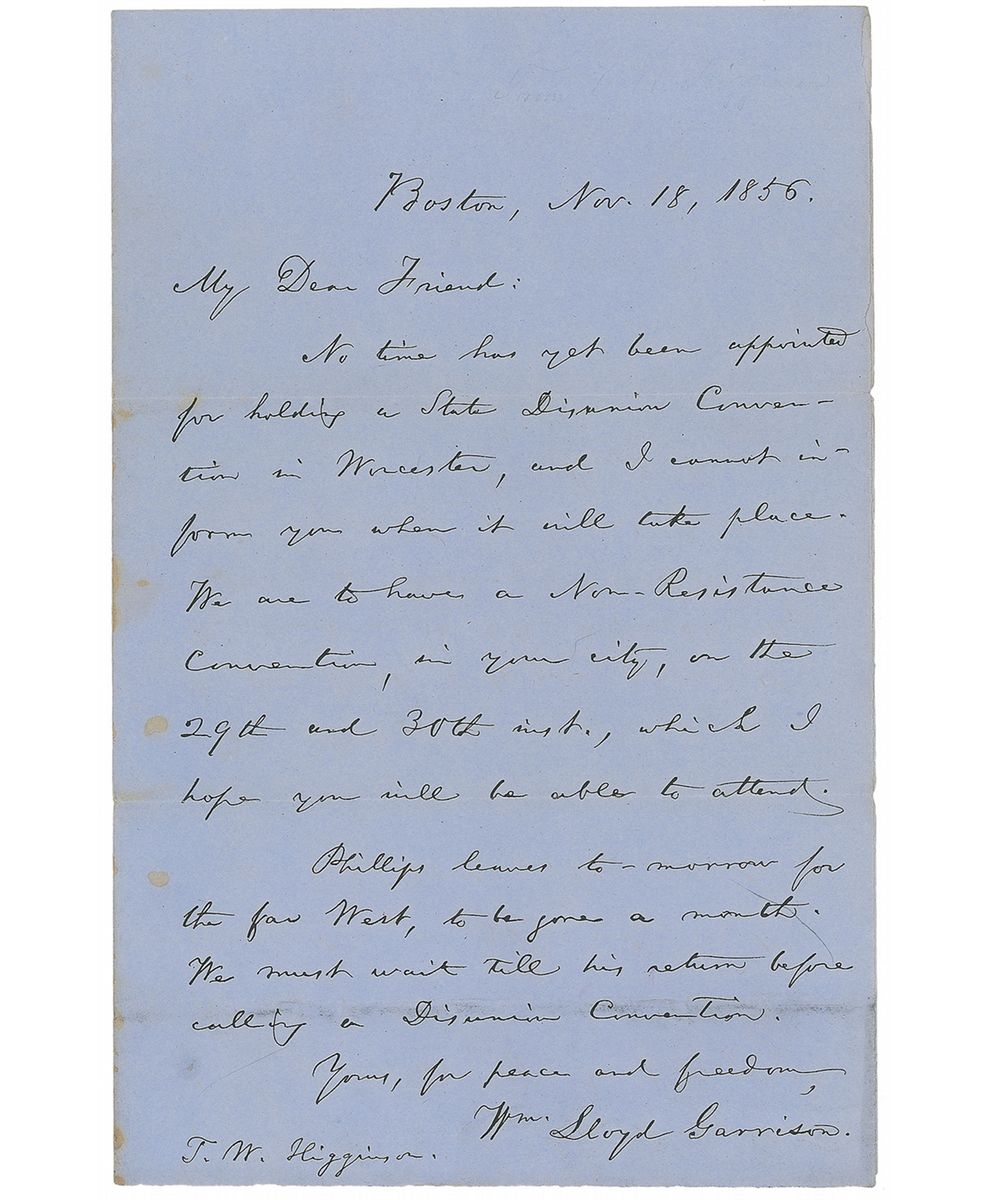 Boston, Nov. 18, 1856.
My Dear Friend:
No time has yet been appointed
for holding a State Disunion Conven-
tion in Worcester, and I cannot in-
form you when it will take place.
We are to have a Non-Resistance
Convention, in your city, on the
29th and 30th inst., which I
hope you will be able to attend.
Phillips leaves to-morrow for
the far West, to be gone a month.
We must wait till his return before
calling a Disunion Convention.
Yours, for peace and freedom,
Wm. Lloyd Garrison.
T. W. Higginson.